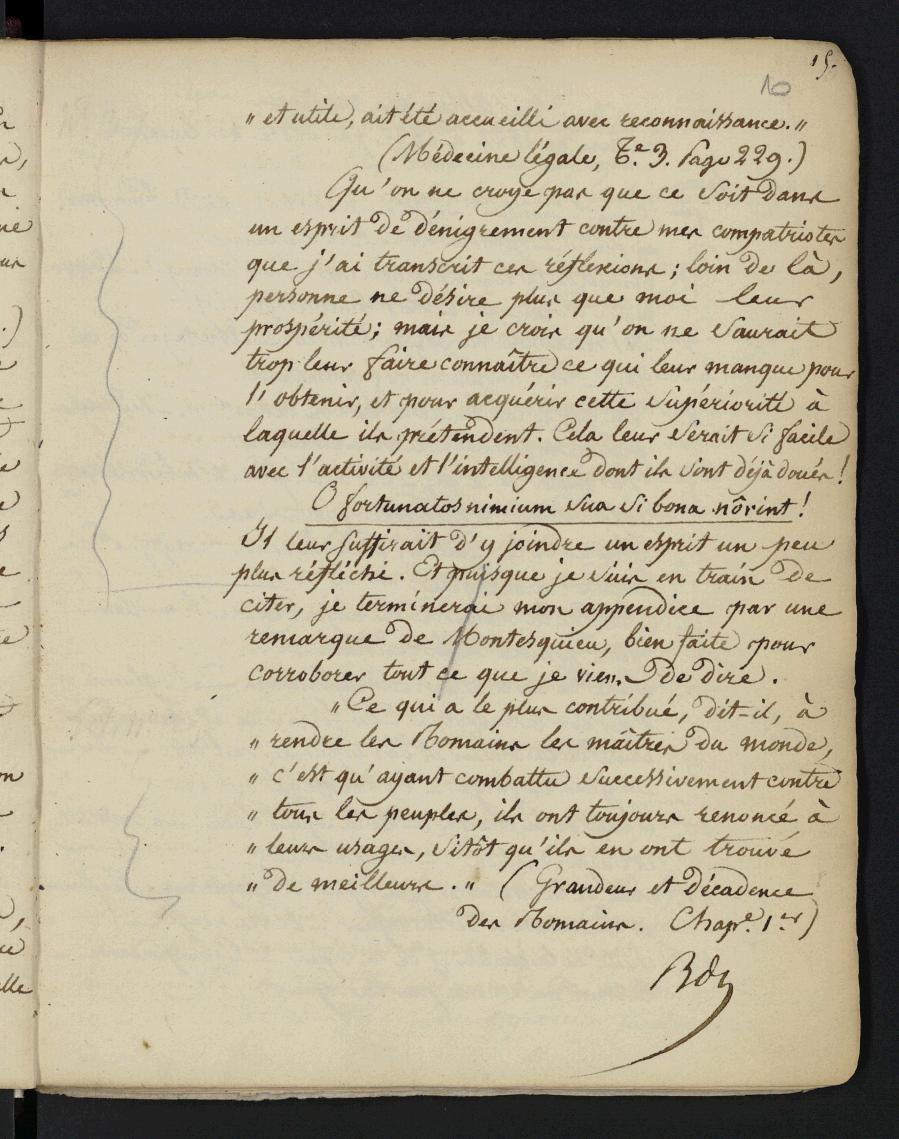 15.
10
„ et utile, ait été accueilli avec reconnaissance. „
(Médecine légale, T.e 3. Page 229.)
Qu'on ne croye pas que ce soit dans
un esprit de dénigrement contre mes compatriotes
que j'ai transcrit ces réflexions ; loin de là,
personne ne désire plus que moi leur
prospérité ; mais je crois qu'on ne saurait
trop leur faire connaître ce qui leur manque pour
l'obtenir, et pour acquérir cette supériorité à
laquelle ils prétendent. Cela leur serait si facile
avec l'activité et l'intelligence dont ils sont déjà doués !
O fortunatos nimium sua si bona nôrint !
Il leur suffirait d'y joindre un esprit un peu
plus réfléchi. Et puisque je suis en train de
citer, je terminerai mon appendice par une
remarque de Montesquieu, bien faite pour
corroborer tout ce que je viens de dire.
„ Ce qui a le plus contribué, dit-il, à
„ rendre les Romains les maîtres du monde,
„ c'est qu'ayant combattu successivement contre
„ tous les peuples, ils ont toujours renoncé à
„ leurs usages, sitôt qu'ils en ont trouvé
„ de meilleurs. „ (Grandeur et Décadence
des Romains. Chap.e 1.er)